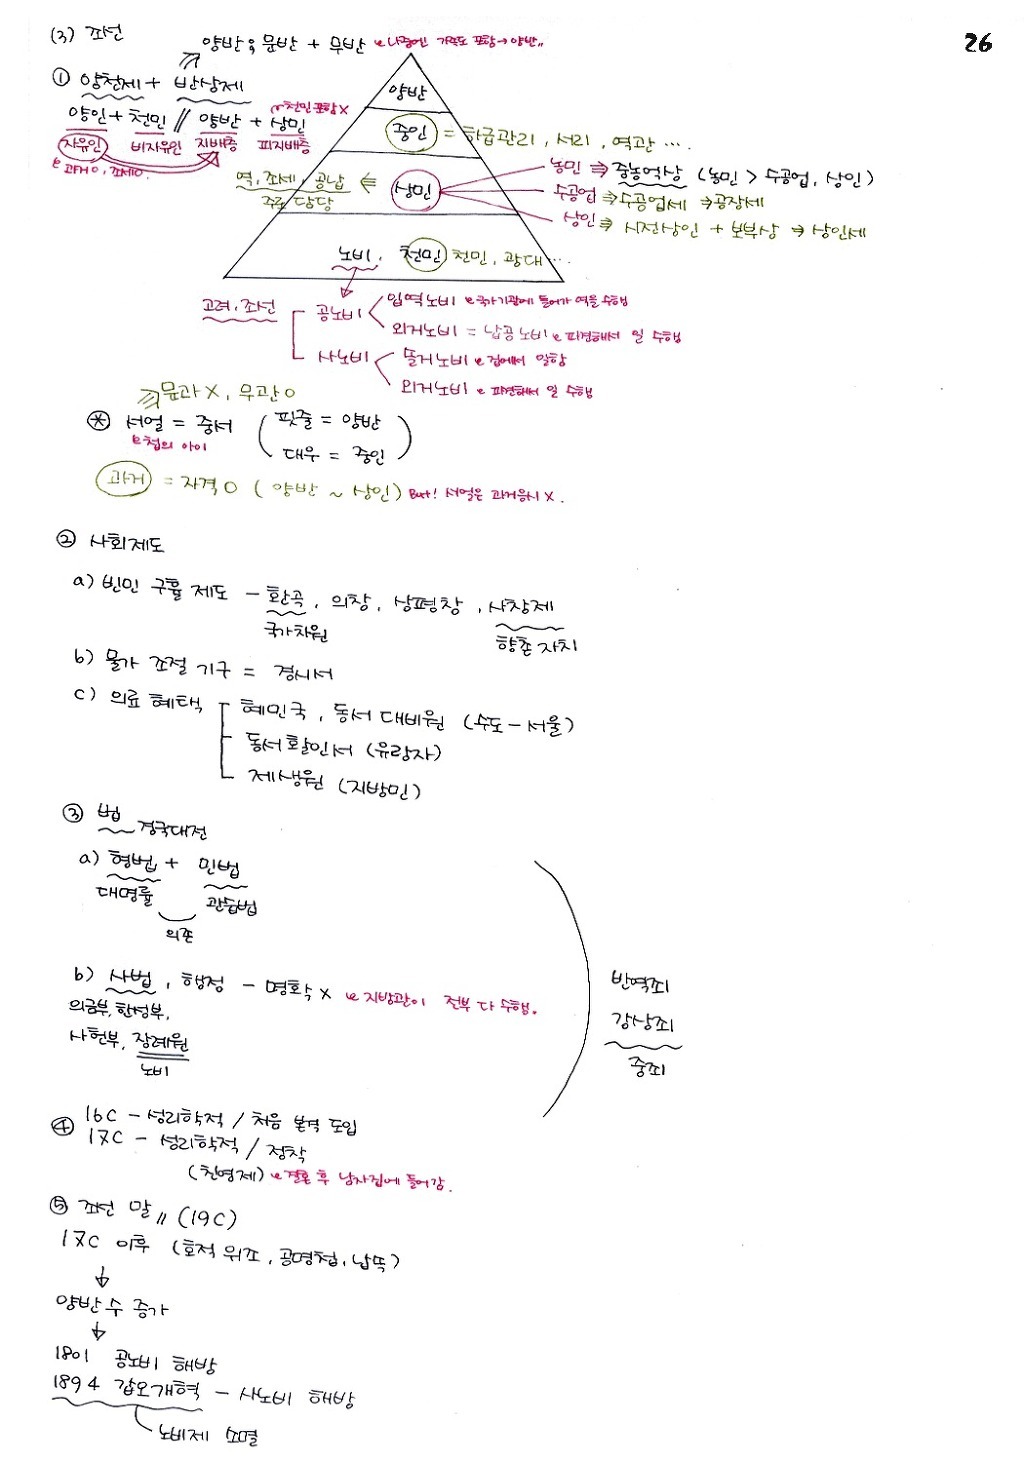 26
(3) 조선
양반 ; 문반 + 무반 나중에 가족도 포함 → 양반〃
① 양천제 + 반상제
양인 + 천민 // 양반 + 상민 천민 포함 X
자유인 비자유인 지배층 피지배층
과거 O, 조세 O.
양반
중인 = 하급관리, 서리, 역관 ….
역, 조세, 공납 ⇐ 상민
주로 담당
농민 ⇒ 중농억상 (농민 > 수공업, 상인)
수공업 ⇒ 수공업세 ⇒ 공장세
상인 ⇒ 시전상인 + 보부상 ⇒ 상인세
노비, 천민 천민, 광대 …
고려, 조선
공노비 < 입역노비 국가기관에 들어가 역을 수행
외거노비 = 납공노비 파견해서 일 수행
사노비 < 솔거노비 집에서 일함
외거노비 파견해서 일 수행
⇒ 문과 X, 무과 O
* 서얼 = 중서 (핏줄 = 양반
대우 = 중인)
첩의 아이
과거 = 자격 O (양반 ~ 상인) But! 서얼은 과거응시 X.
② 사회제도
a) 빈민 구휼 제도 - 환곡, 의창, 상평창, 사창제
국가차원 향촌 자치
b) 물가 조절 기구 = 경시서
c) 의료 혜택 혜민국, 동서 대비원 (수도-서울)
동서활인서 (유랑자)
제생원 (지방민)
③ 법
경국대전
a) 형법 + 민법
대명률 관습법
의존
b) 사법, 행정 - 명확 X 지방관이 전부 다 수행.
의금부, 한성부,
사헌부, 장례원
노비
반역죄
강상죄
중죄
④ 16C - 성리학적 / 처음 본격 도입
17C - 성리학적 / 정착
(친영제) 결혼 후 남자집에 들어감.
⑤ 조선 말〃 (19C)
17C 이후 (호적 위조, 공명첩, 납속)
↓
양반 수 증가
↓
1801 공노비 해방
1894 갑오개혁 - 사노비 해방
노비제 소멸